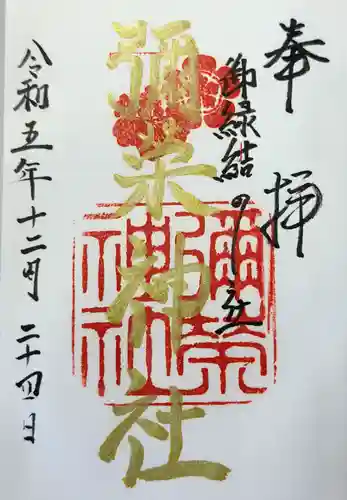 奉拝
御縁結の
彌栄神社
彌榮神社
令和五年十二月二十四日